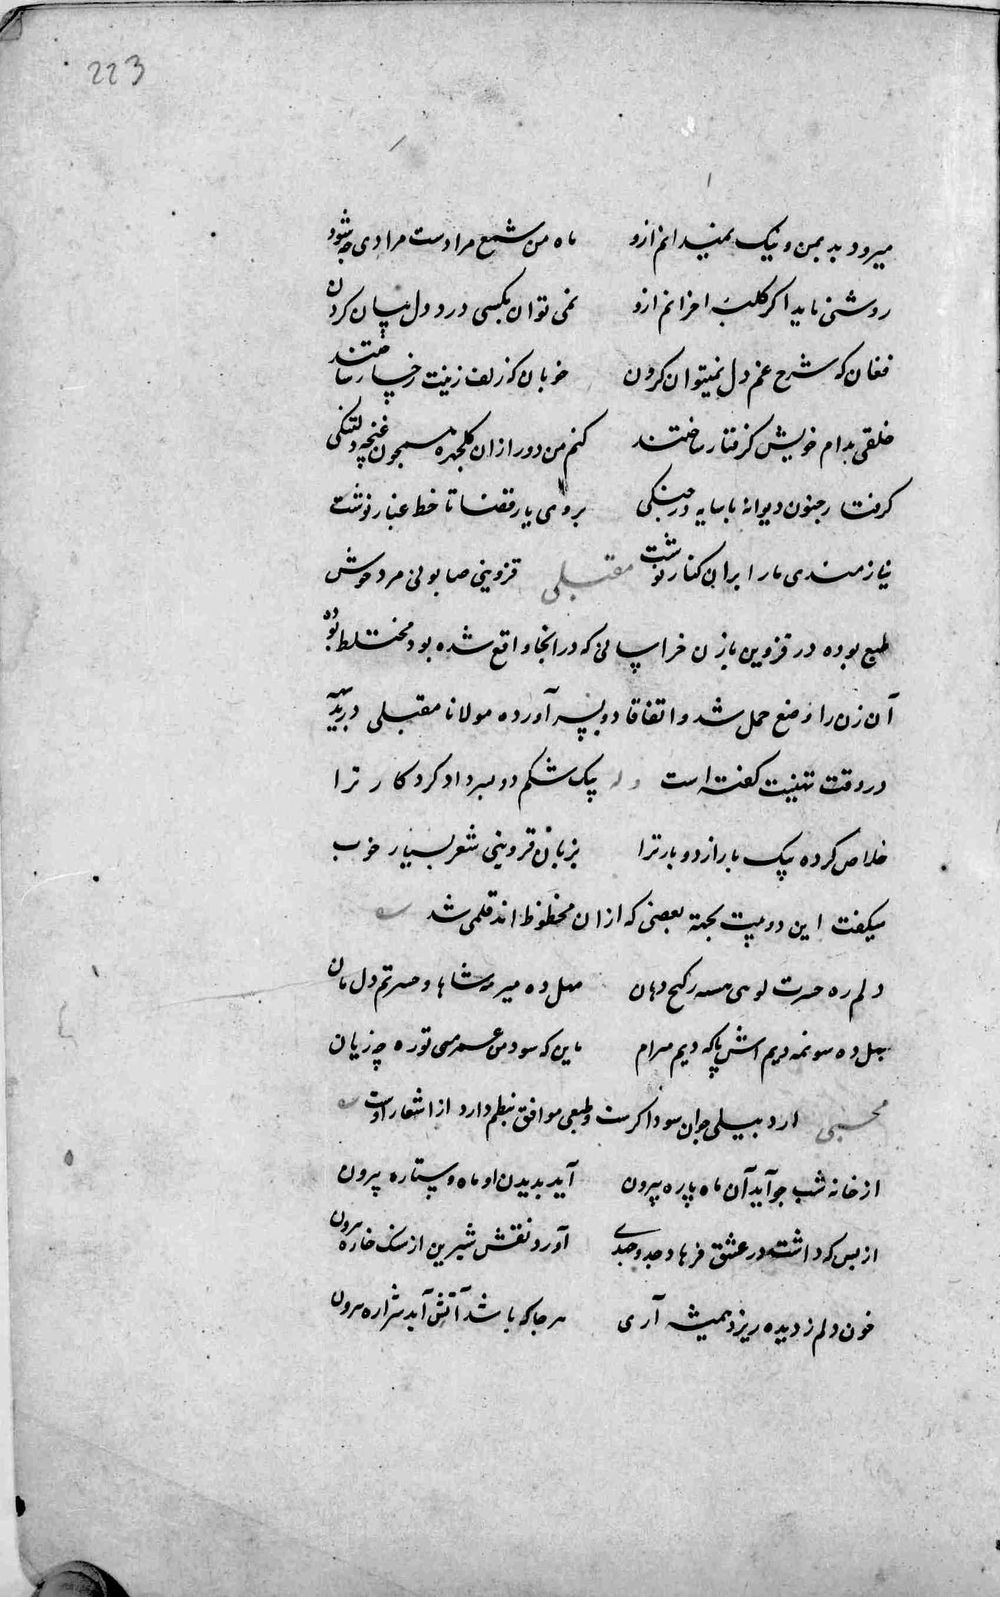 223
میرود بد بمن و نیک نمیدانم ازو ماه من شمع مرادست مرادی چه شود
روشنی یابد اگر کلبه احزانم ازو نمی توان بکسی درد دل بیان کردن
فغان که شرح غم دل نمیتوان کردن خوبان که زلف زینت رخسار ساختند
خلقی بدام خویش گرفتار ساختند کنم من دور ازان گلچهره همچون غنچه دلتنگی
کرفت رجنون دیوانه با سایه در جنگی بروی یار قضا تا خط غبار نوشت
نیازمندی مارا بران کنار نوشت مقبلی قزوینی صابونی مرد خوش
طبع بوده در قزوین بازن خراسانی که در انجا واقع شده بود مختلط بوده
آن زن را وضع حمل شد و اتفاقا دو پسر آورده مولانا مقبلی در بدیهه
در وقت تهنیت گفته است وله یک شکم دو مبر داد کردکار ترا
خلاص کرده یک بار از دو بار ترا بزبان قزوینی شعر بسیار خوب
میکفت این دو بیت بجهة بعضی که ازان محظوظ اند قلمی شد
دلم ره حسرت لوی دهان مهل ده میر مشاها و حسرتم دل مان
بهل ده سونمه دیم اش پاکه دیم مرام ماین که سود من عمر می توره چه زیان
محبی اردبیلی جوان سوداکرست و طبعی موافق بنظم دارد از اشعار اوست
از خانه شب جو آید آن ماه پاره بیرون آید بدیدن او ماه و ستاره بیرون
از بس که داشت در عشق فرهاد جد و جهدی آورد نقش شیرین از سنک خاره بیرون
خون دلم ز دیده ریزد همیشه آری هر جا که باشد آتش آید شراره بیرون